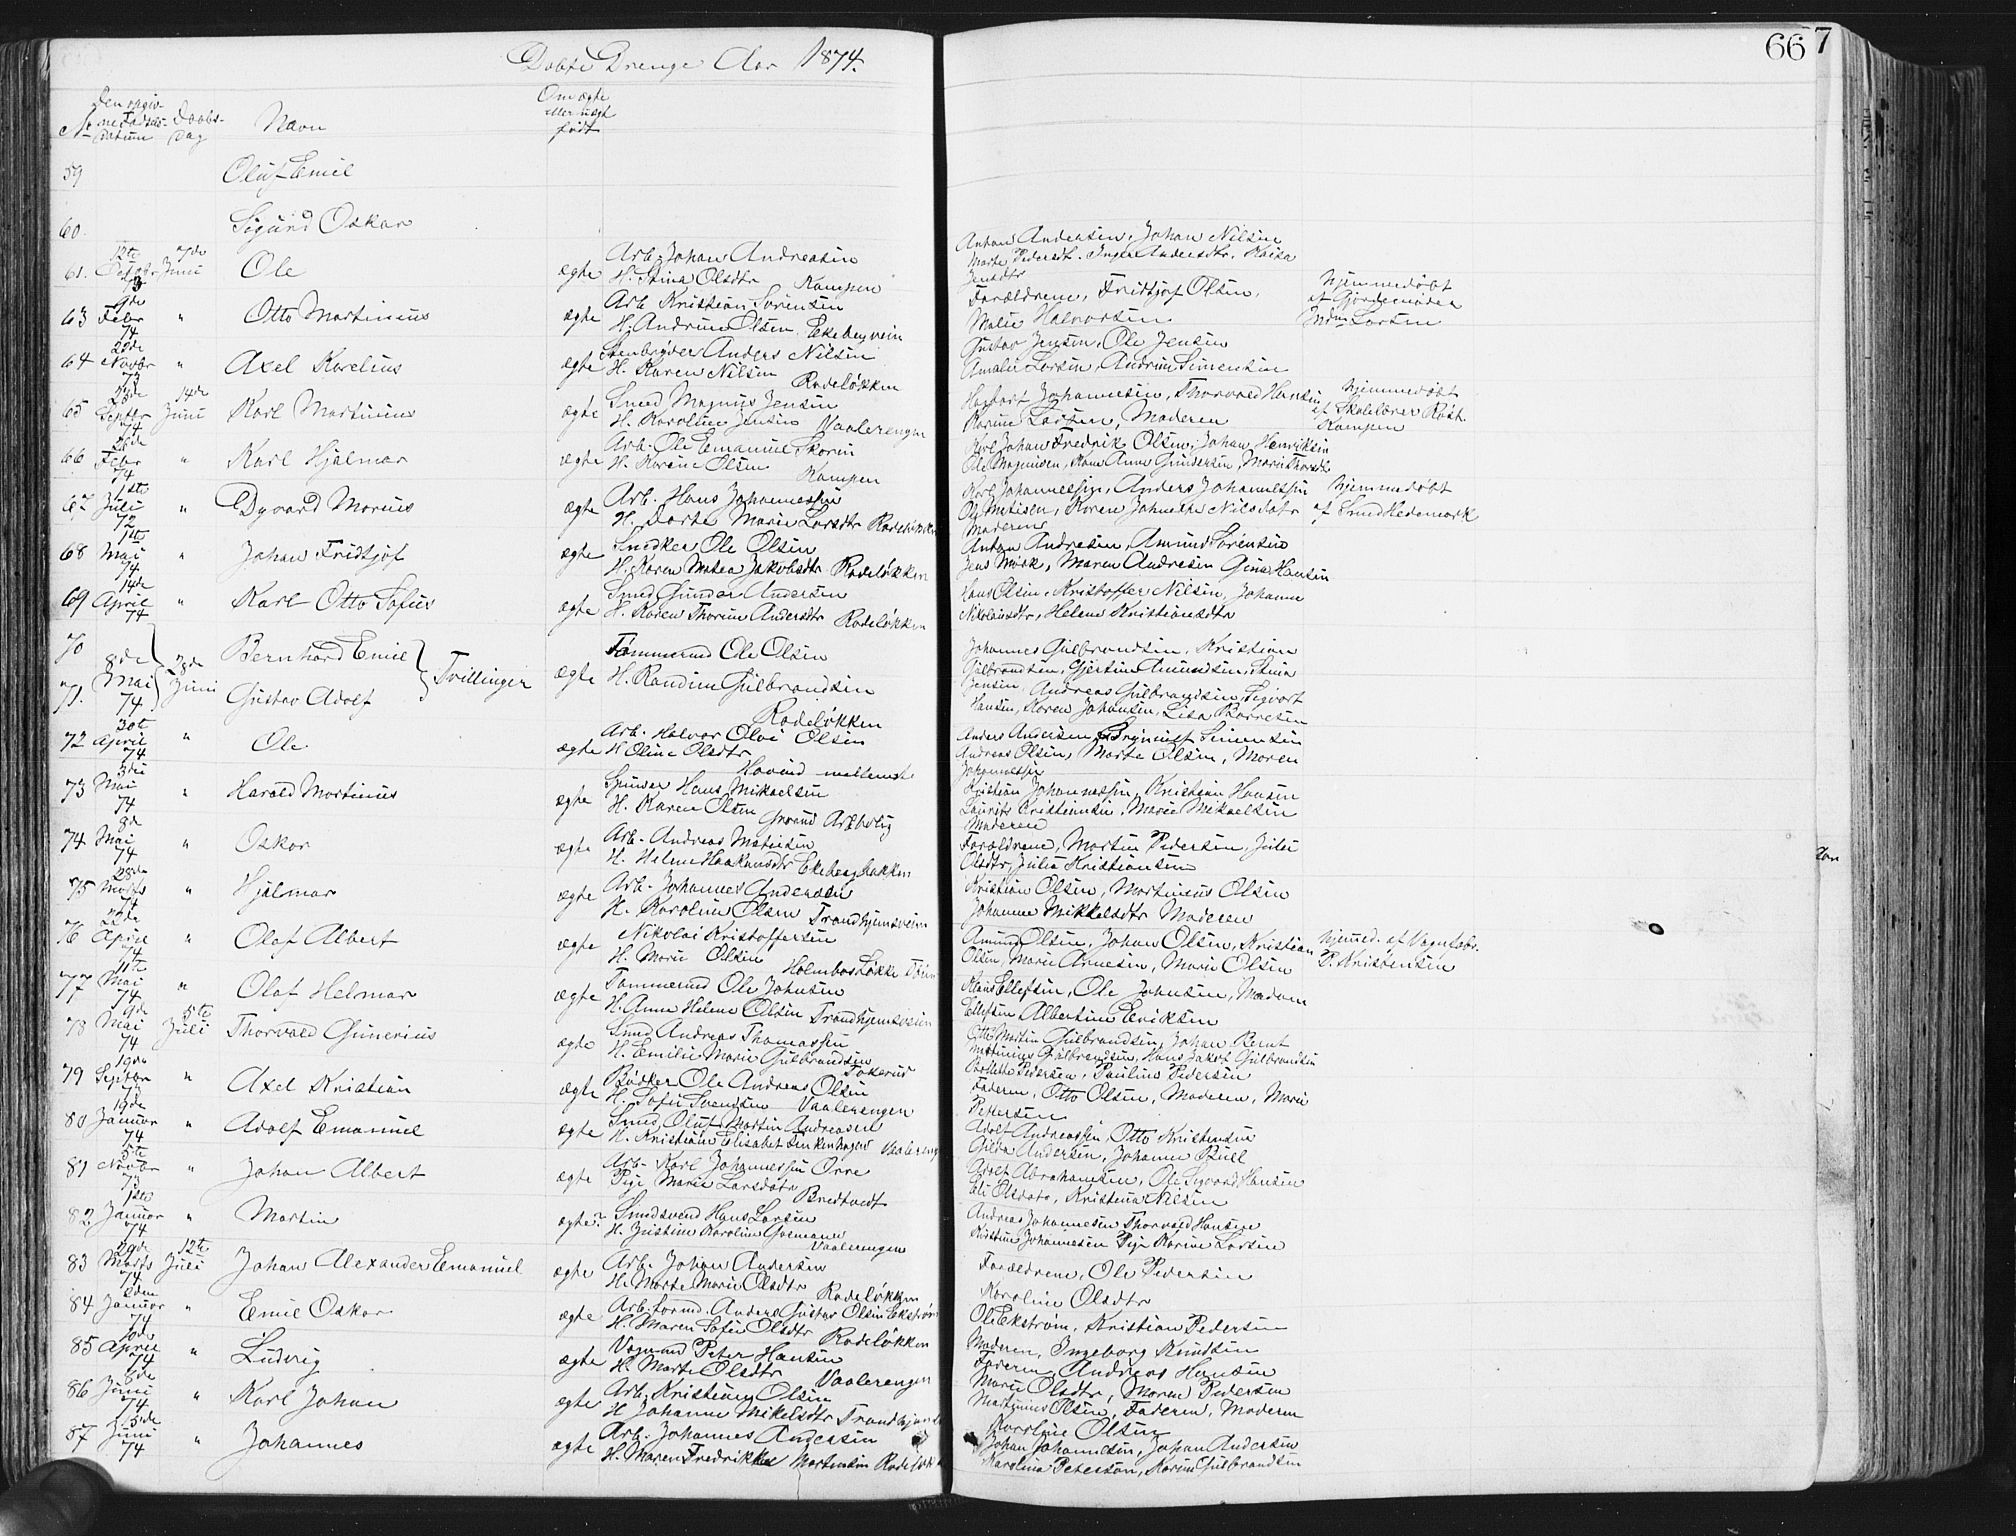 Døbte Drenge Aar 1874.
66
7
No
Den opgivne Fødselsdatum
Daabsdag
Navn
Om ægte eller uægte født
59 Oluf Emil
60. Sigurd Oskar
61. 12te Octobr 73 7de Juni Ole ægte Arb. Johan Andreasen
H. Stina Olsdtr Kampen
Anton Andersen, Johan Nilsen
Marte Pedersdtr. Inger Andersdtr, Kaisa
Jensdtr
63 9de Febr 74 " Otto Martinius ægte Arb. Kristian Sørensen
H. Andrine Olsen Ekebergvein
Forældrene, Fridtjof Olsen,
Malie Halvorsen
Hjemmedøbt
af Gjordemoder
Mdm Larsen
64 22de Novbr 73 " Axel Karelius ægte Stenbryder Anders Nilsen
H. Karen Nilsen Rodeløkken
Gustav Jensen, Ole Jensen
Amalie Larsen, Andrine Simensen
65 23de Septbr 14de Juni Karl Martinius ægte Smed Magnus Jensen
H. Karoline Jensen Vaalerengen
Johannesen, Thorvald Hansen
Karine Larsen, Moderen
Hjemmedøbt
af Skolelærer Røst.
Kampen
66 Febr 74 " Karl Hjalmar ægte Arb. Ole Emanuel Skoren
H. Karine Olsen Kampen
Karl Johan Fredrik Olsen, Johan Henriksen
Ole Magnusen, Anne Gundersen, Marie Thorsdtr
67 1ste Juli 72 " Dyvard Marius ægte Arb. Hans Johannessen
H. Dorte Marie Larsdtr Rodeløkken
Karl Johannessen, Anders Johannessen
Ole Matisen, Karen Nilsdatr
Moderen
Hjemmedøbt
af Smed Hedemark
68 1ste Mai 74 " Johan Fridtjof ægte Snedker Ole Olsen
H. Karen Matea Jakobsdtr Rodeløkken
Anton Andresen, Amund Sørensen
Jens Mørk, Maren Andresen Gina Hansen
69 14de April 74 " Karl Otto Sofus ægte Smed Gunder Andersen
H. Karen Thorine Andersdtr Rodeløkken
Hans Olsen, Kristoffer Nilsen, Johanne
Nikolaisdtr, Helene Kristiansdtr
70 8de Mai 74 28de Juni Bernhard Emil
71. Gustav Adolf
Tvillinger ægte Tømmermd Ole Olsen
H. Randine Gulbrandsen
Rodeløkken
Johannes Gulbrandsen, Kristian
Gulbrandsen, Gjertine Amundsen, Stina
Jensen, Andreas Gulbrandsen, Sigvart
Hansen, Karen Johansen, Lisa Børresen
72 30te April 74 " Ole ægte Arb. Halvor Olai Olsen
H. Oline Olsdtr
Hovind mellemste
Anders Andersen, Brynnulf Simensen
Andreas Olsen, Marte Olsen, Maren
Johannessen
73 3die Mai 74 " Harald Martinius ægte Spinder Hans Mikaelsen
H. Karen Olsen Grorud Arbbolig
Kristian Johannessen, Kristian Hansen
Laurits Cristiansen, Marie Mikaelsen
Moderen
74 8de Mai 74 " Oskar ægte Arb. Andreas Matisen
H. Helene Haakensdtr Ekebergbakken
Forældrene, Martin Pedersen, Julie
Olsdtr, Julia Kristiansen
75 28de Marts " Hjalmar ægte Arb. Johannes Andersen
H. Karoline Olsen Trondhjemsveien
Kristian Olsen, Martinius Olsen
Johanne Mikkelsdtr Moderen
76 22de April 74 " Olaf Albert ægte Nikolai Kristoffersen
H. Marie Olsen Holmboe Løkke Tøien
Amund Olsen, Johan Olsen, Kristian
Olsen, Marie Arnesen, Marie Olsen
Hjemmed. af Vognfabr.
P. Kristensen
77 11te Mai 74 " Olaf Helmar ægte Tømmermd Ole Johnsen
H. Anne Helene Olsen Trondhjemsveien
Klaus Ellefsen, Ole Johnsen, Madam
Ellefsen Albertine Eriksen
78 9de Mai 74 5te Juli Thorvald Gunerius ægte Smed Andreas Thomassen
H. Emilie Marie Gulbrandsen Tokerud
Otto Martin Gulbrandsen, Johan Bernt
Martinius Gulbrandsen, Hans Jakob Gulbrandsen
Bolette Pedersen, Pauline Pedersen
79 19de Septbr " Axel Kristian ægte Bødker Ole Andreas Olsen
H. Sofie Svendsen Vaalerengen
Faderen, Otto Olsen, Moderen, Marie
Pettersen
80 19de Januar 74 " Adolf Emanuel ægte Smed Oluf Martin Andreasen
H. Kristiane Elisabet Vaalereng
Adolf Andreassen, Otto Kristensen
Gilda Andersen, Johanne Bull
81 5te Novbr 73 " Johan Albert ægte Arb. Karl Johannessen Orre
Pige Marie Larsdatr Bredtvedt
Adolf Abrahamsen, Ole Sigvard Hansen
Eli Olsdatr, Kristena Nilsen
82 1ste Januar 74 " Martin ægte? Smedsvend Hans Larsen
H. Justine Karoline Gormann
Vaalerengen
Andreas Johannesen Thorvald Hansen
Kristine Johannesen Pige Karine Larsen
83 29de Marts 74 12te Juli Johan Alexander Emanuel ægte Arb. Johan Andersen
H. Marte Marie Olsdtr Rodeløkken
Forældrene, Ole Pedersen
Karoline Olsdtr
84 2den Januar 74 " Emil Oskar ægte Arb.formd. Anders Gustav Olsen Ekstrøm
H. Maren Sofie Olsdtr Rodeløkken
Ole Ekstrøm, Kristian Pedersen
Moderen, Ingeborg Knudsen
85 April 74 " Ludvig ægte Vognmd Peter Hansen
H. Marte Olsdtr Vaalerengen
Faderen, Andreas Hansen
Marie Olsdtr, Maren Pedersen
86 8de Juni 74 " Karl Johan ægte Arb. Kristian Olsen
H Johanne Mikelsdtr Trondhjems
Martinius Olsen, Faderen, Moderen
Karoline Olsen
87 5de Juni 74 " Johannes ægte Arb. Johannes Andersen
H. Maren Fredrikke Martinsen Rodeløkk
Johan Johannesen, Johan Andersen
Karolina Petersen, Karine Gulbrandsen